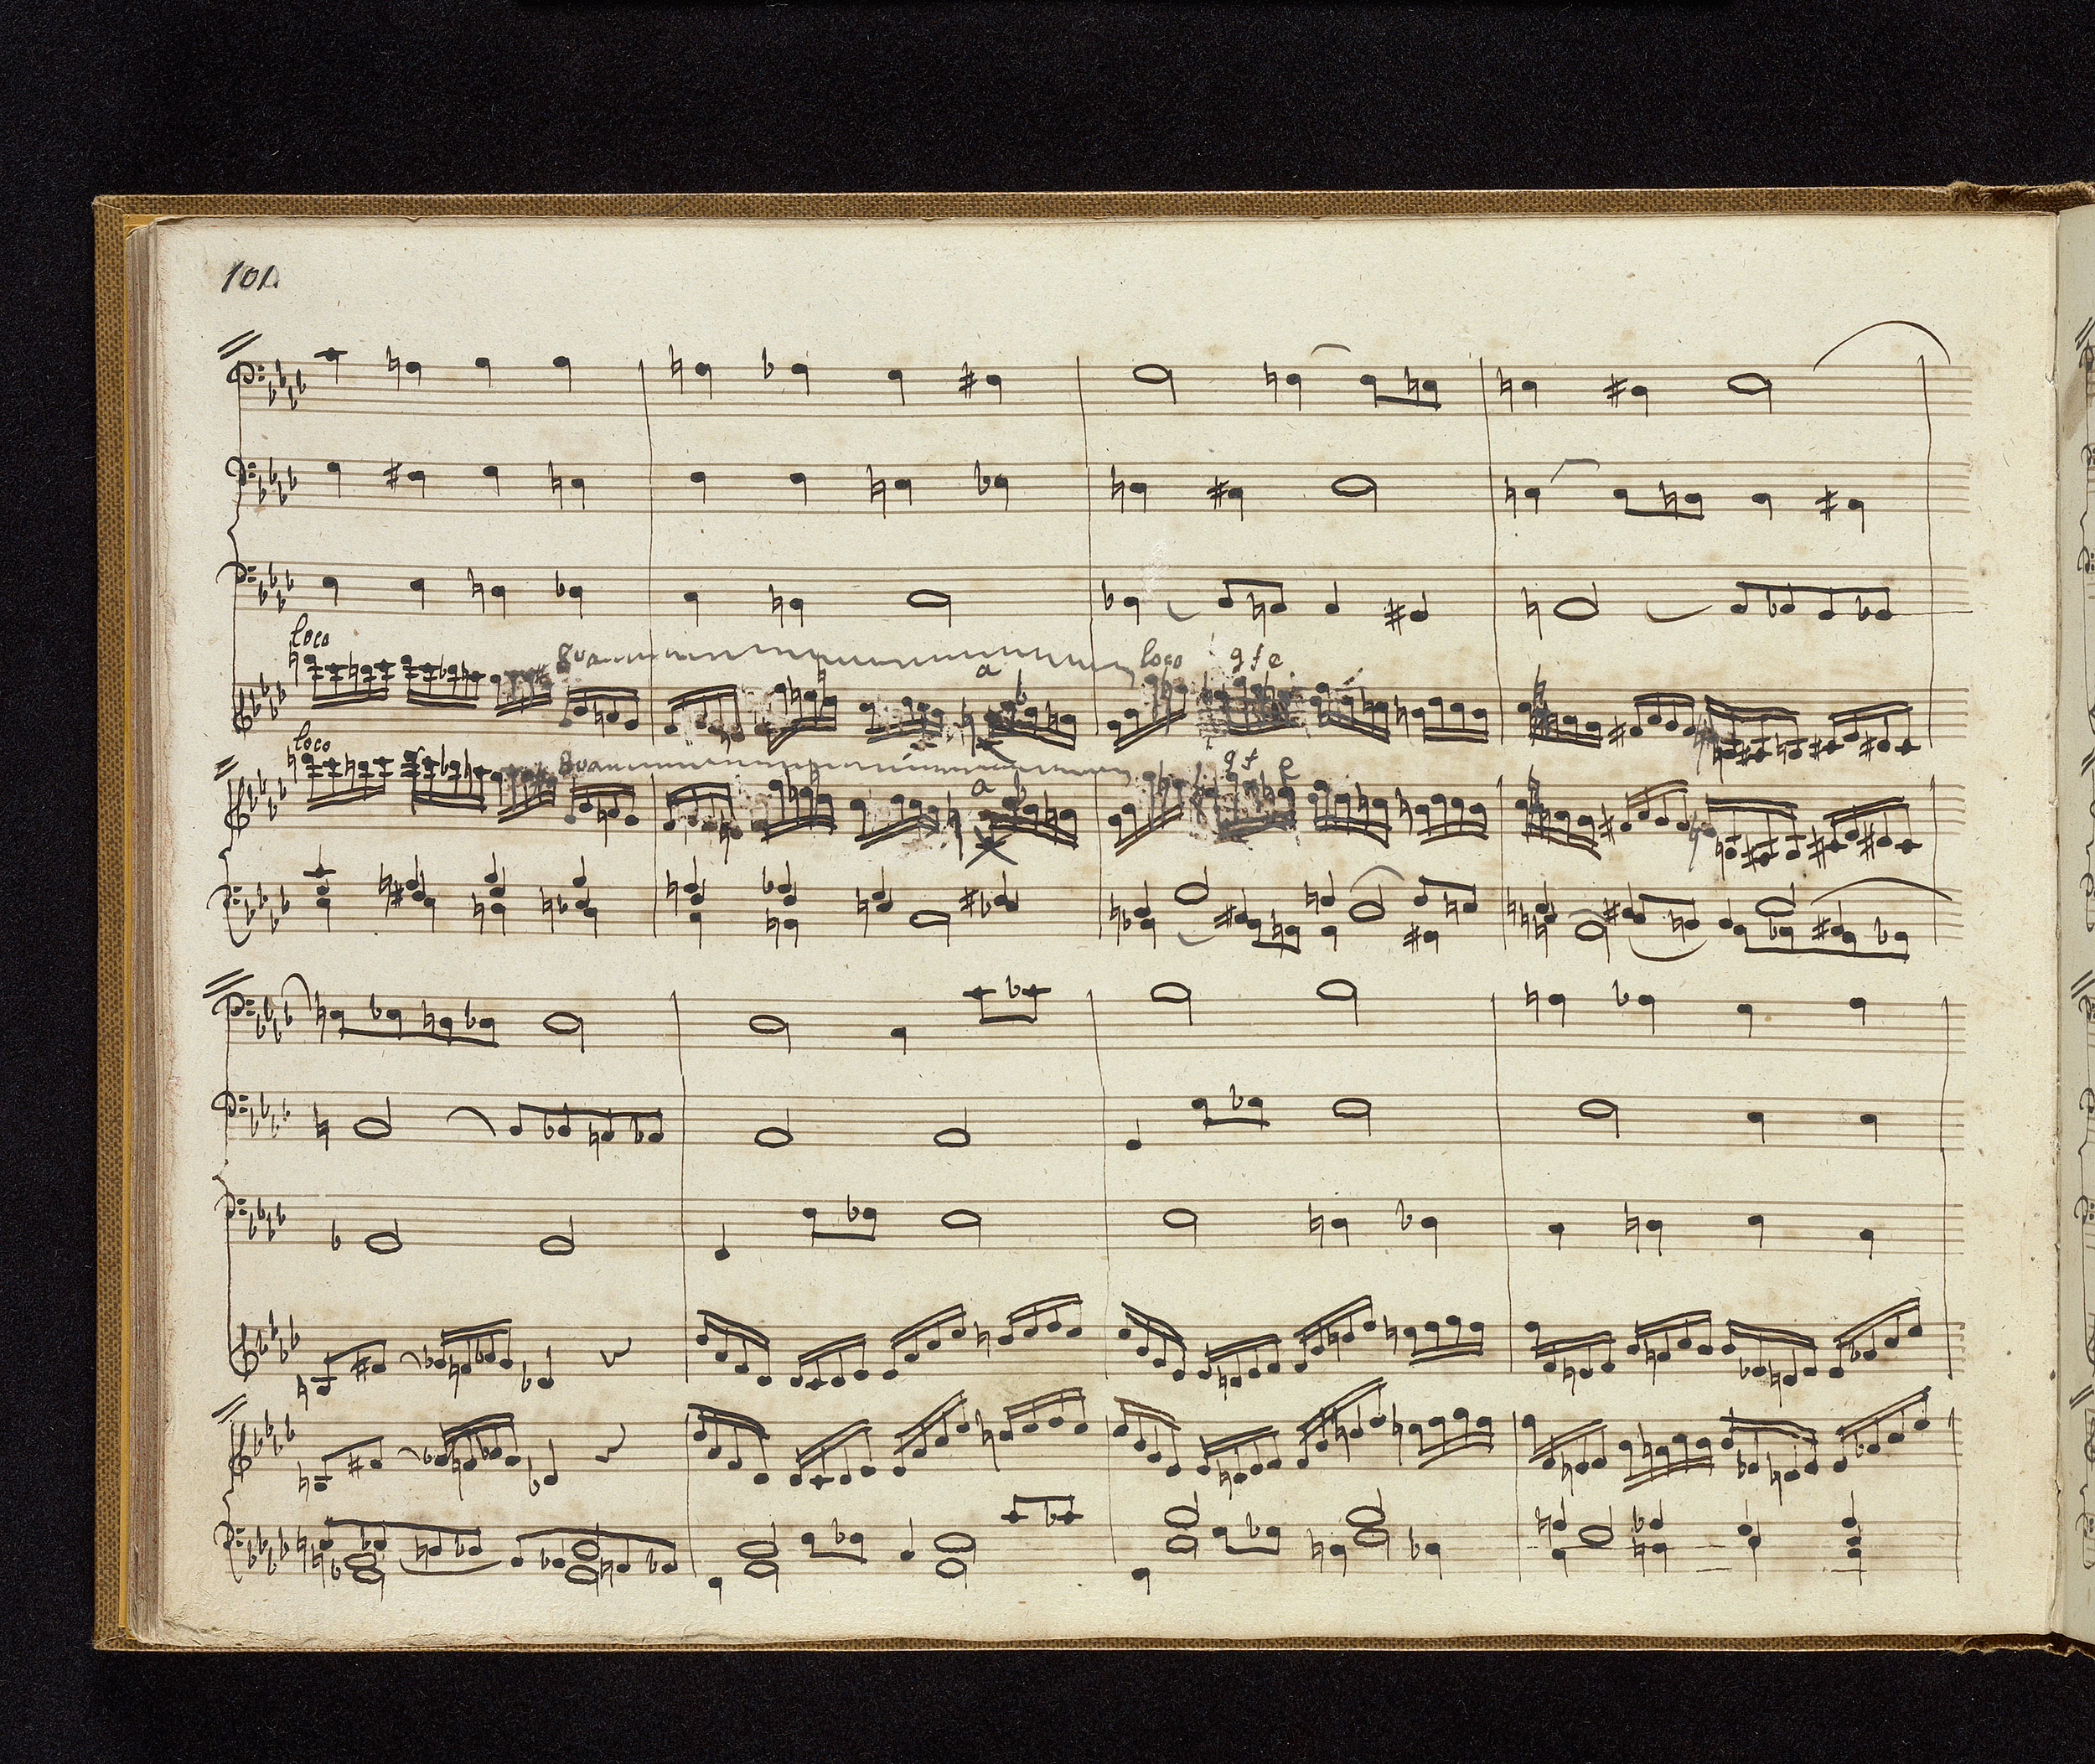 loco
8va a loco g f e
loco
8va a g f e